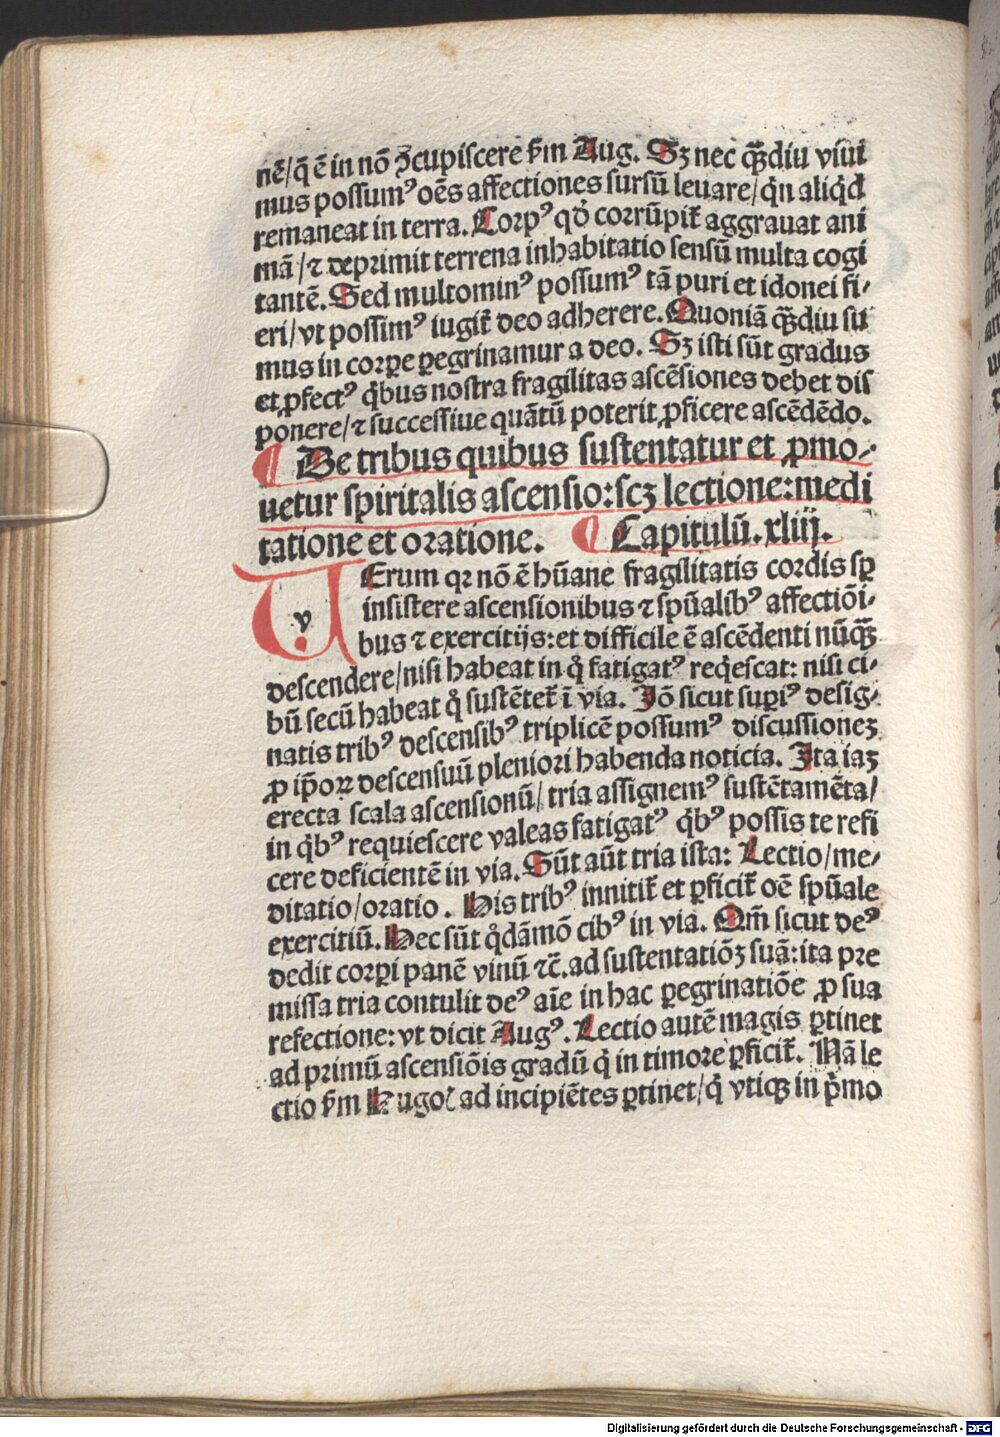 nē/q̄ ē in nō ꝯcupiscere ẜm Aug. Sꝫ nec qꝫdiu viui
mus possumꝰ oēs affectiones sursū leuare/qͥn aliqͥd
remaneat in terra. Corpꝰ qđ corrūpit̄ aggrauat ani
mā/⁊ deprimit terrena inhabitatio sensū multa cogi
tantē. Sed multominꝰ possumꝰ tā puri et idonei fi⸗
eri/vt possimꝰ iugit̄ deo adherere. Quoniā qꝫdiu su
mus in corꝑe ꝑegrinamur a deo. Sꝫ isti sūt gradus
et ꝓfectꝰ qͥbus nostra fragilitas ascēsiones debet dis
ponere/⁊ successiue quātū poterit ꝓficere ascēdēdo.
¶ De tribus quibus sustentatur et ꝓmo⸗
uetur spiritalis ascensio:scꝫ lectione:medi
tatione et oratione. ¶ Capitulū. xliij.
v Erum qꝛ nō ē hūane fragilitatis cordis sꝑ
insistere ascensionibus ⁊ spūalibꝰ affectiōi⸗
bus ⁊ exercitijs:et difficile ē ascēdenti nūqꝫ
descendere/nisi habeat in qͦ fatigatꝰ reqͥescat: nisi ci⸗
bū secū habeat qͦ sustētet̄ ī via. Jō sicut suꝑiꝰ desig⸗
natis tribꝰ descensibꝰ triplicē possumꝰ discussioneꝫ
ꝓ ip̄oꝝ descensuū pleniori habenda noticia. Ita iaꝫ
erecta scala ascensionū/tria assignemꝰ sustētamēta/
in qͥbꝰ requiescere valeas fatigatꝰ qͥbꝰ possis te refi
cere deficientē in via. Sūt aūt tria ista: Lectio/me⸗
ditatio/oratio. His tribꝰ innitit̄ et ꝑficit̄ oē spūale
exercitiū. Hec sūt qͦdāmō cibꝰ in via. Qm̄ sicut deꝰ
dedit corꝑi panē vinū ⁊c̄. ad sustentatiōꝫ suā:ita pre
missa tria contulit deꝰ aīe in hac ꝑegrinatiōe ꝓ sua
refectione: vt dicit Augꝰ. Lectio autē magis ꝑtinet
ad primū ascensiōis gradū qͥ in timore ꝑficit̄. Nā le
ctio ẜm Hugoꝭ ad incipiētes ꝑtinet/qͥ vtiqꝫ in pͥmo
Digitalisierung gefördert durch die Deutsche Forschungsgemeinschaft - DFG